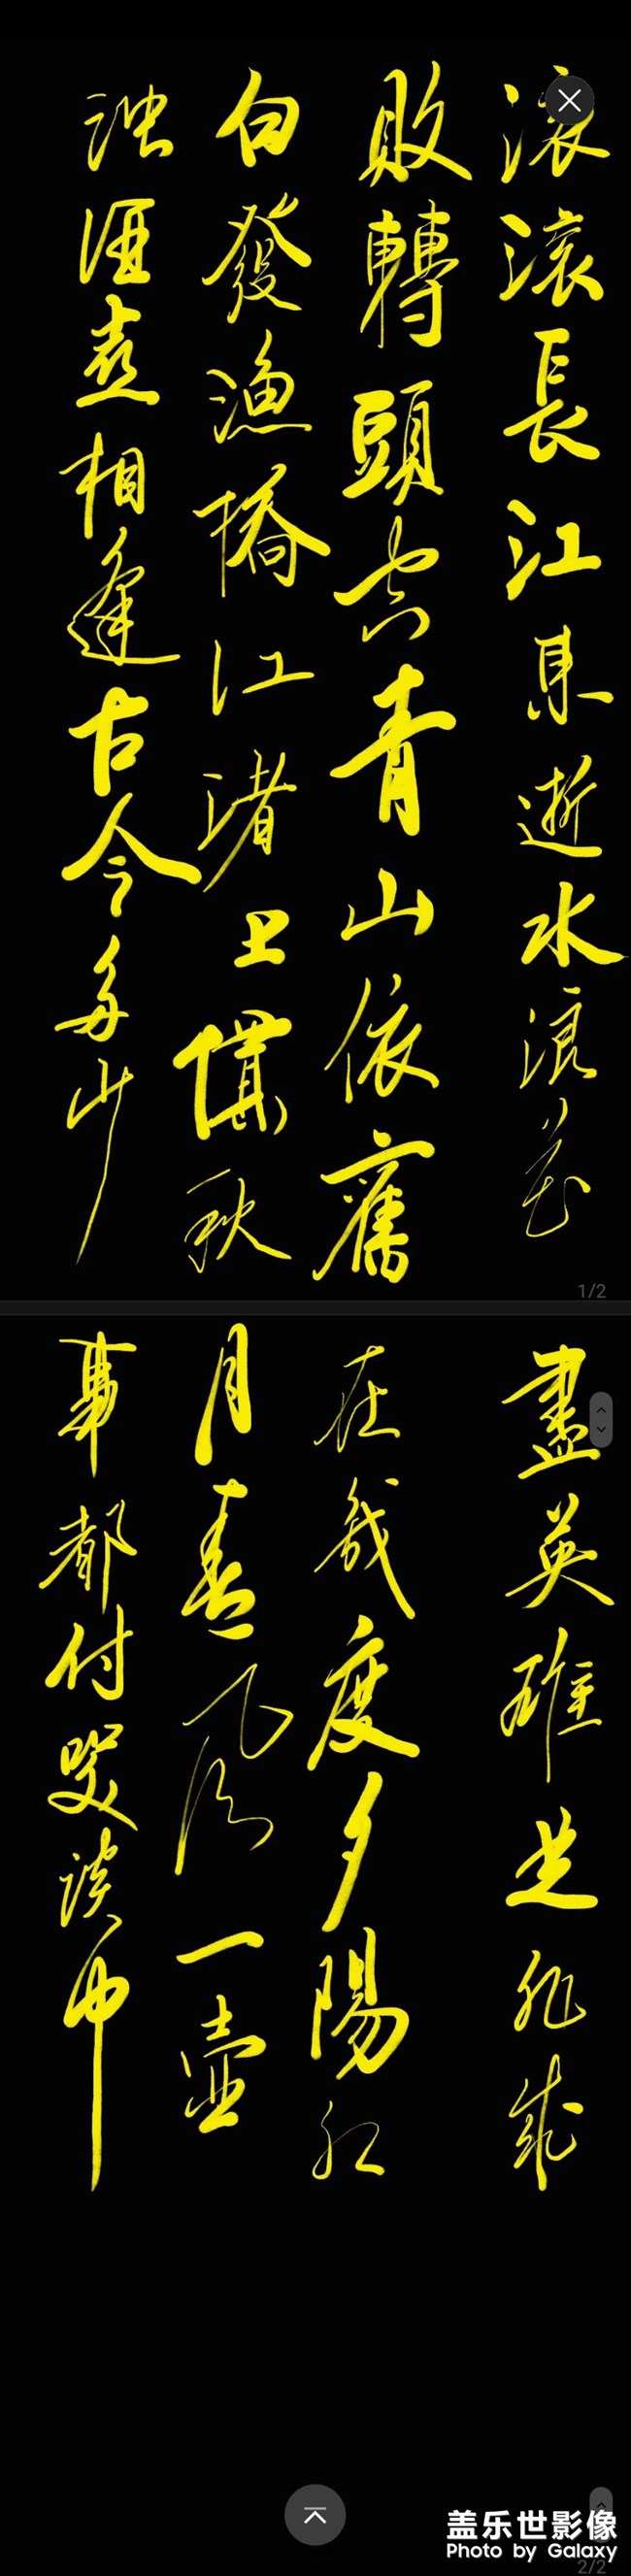 滚滚長江東逝水浪花
盡英雄是非成
敗轉頭空青山依舊
在幾度夕陽红
白發渔橋江渚上慣秋
月春風一壺
浊酒喜相逢古今多少
事都付笑談中
1/2
盖乐世影像
Photo by Galaxy
2/2